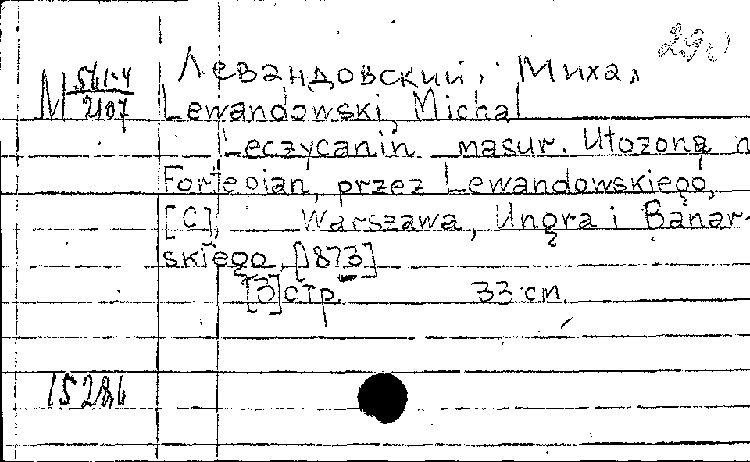 290
М 561-4/2107
Левандовский, Миха,
Lewandowski, Michal
Leczycanin masur. Utozona n
Fortepian, przez Lewandowskiego,
[C], Warszawa, Ungra i Banar-
skiego, [1873]
[3] стр. 33 см.
15286